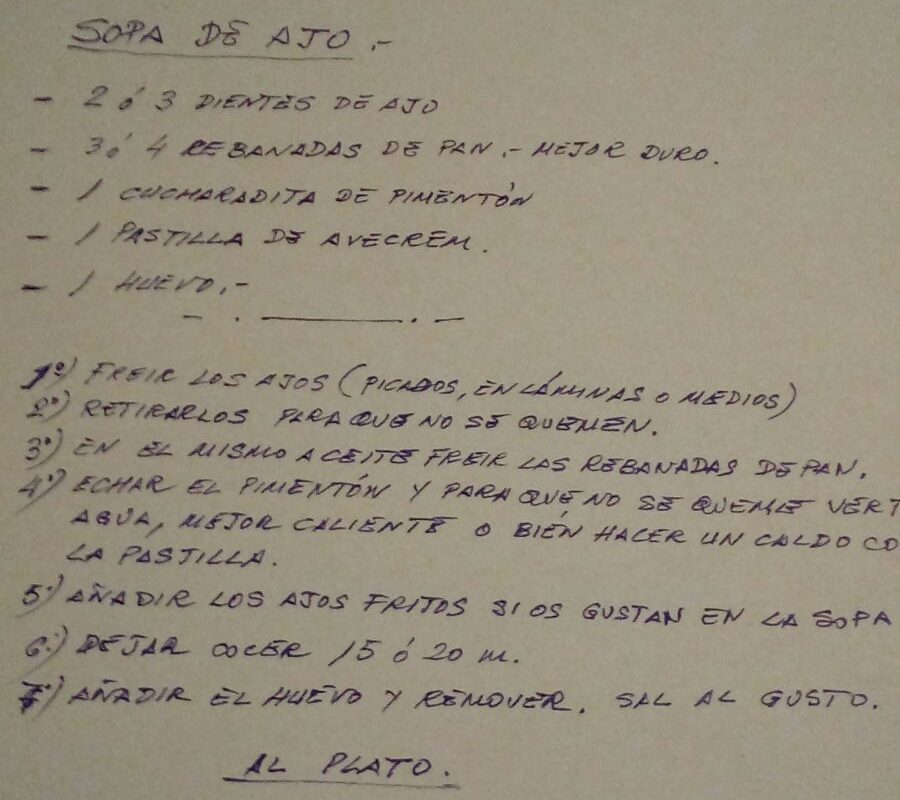 SOPA DE AJO.-
- 2 ó 3 DIENTES DE AJO
- 3 ó 4 REBANADAS DE PAN.- MEJOR DURO.
- 1 CUCHARADITA DE PIMENTÓN
- 1 PASTILLA DE AVECREM.
- 1 HUEVO.-
1º) FREIR LOS AJOS (PICADOS, EN LÁMINAS O MEDIOS)
2º) RETIRARLOS PARA QUE NO SE QUEMEN.
3º) EN EL MISMO ACEITE FREIR LAS REBANADAS DE PAN.
4º) ECHAR EL PIMENTÓN Y PARA QUE NO SE QUEME VERT
AGUA, MEJOR CALIENTE O BIÉN HACER UN CALDO CO
LA PASTILLA.
5º) AÑADIR LOS AJOS FRITOS SI OS GUSTAN EN LA SOPA
6º) DEJAR COCER 15 ó 20 m.
7º) AÑADIR EL HUEVO Y REMOVER. SAL AL GUSTO.
AL PLATO.